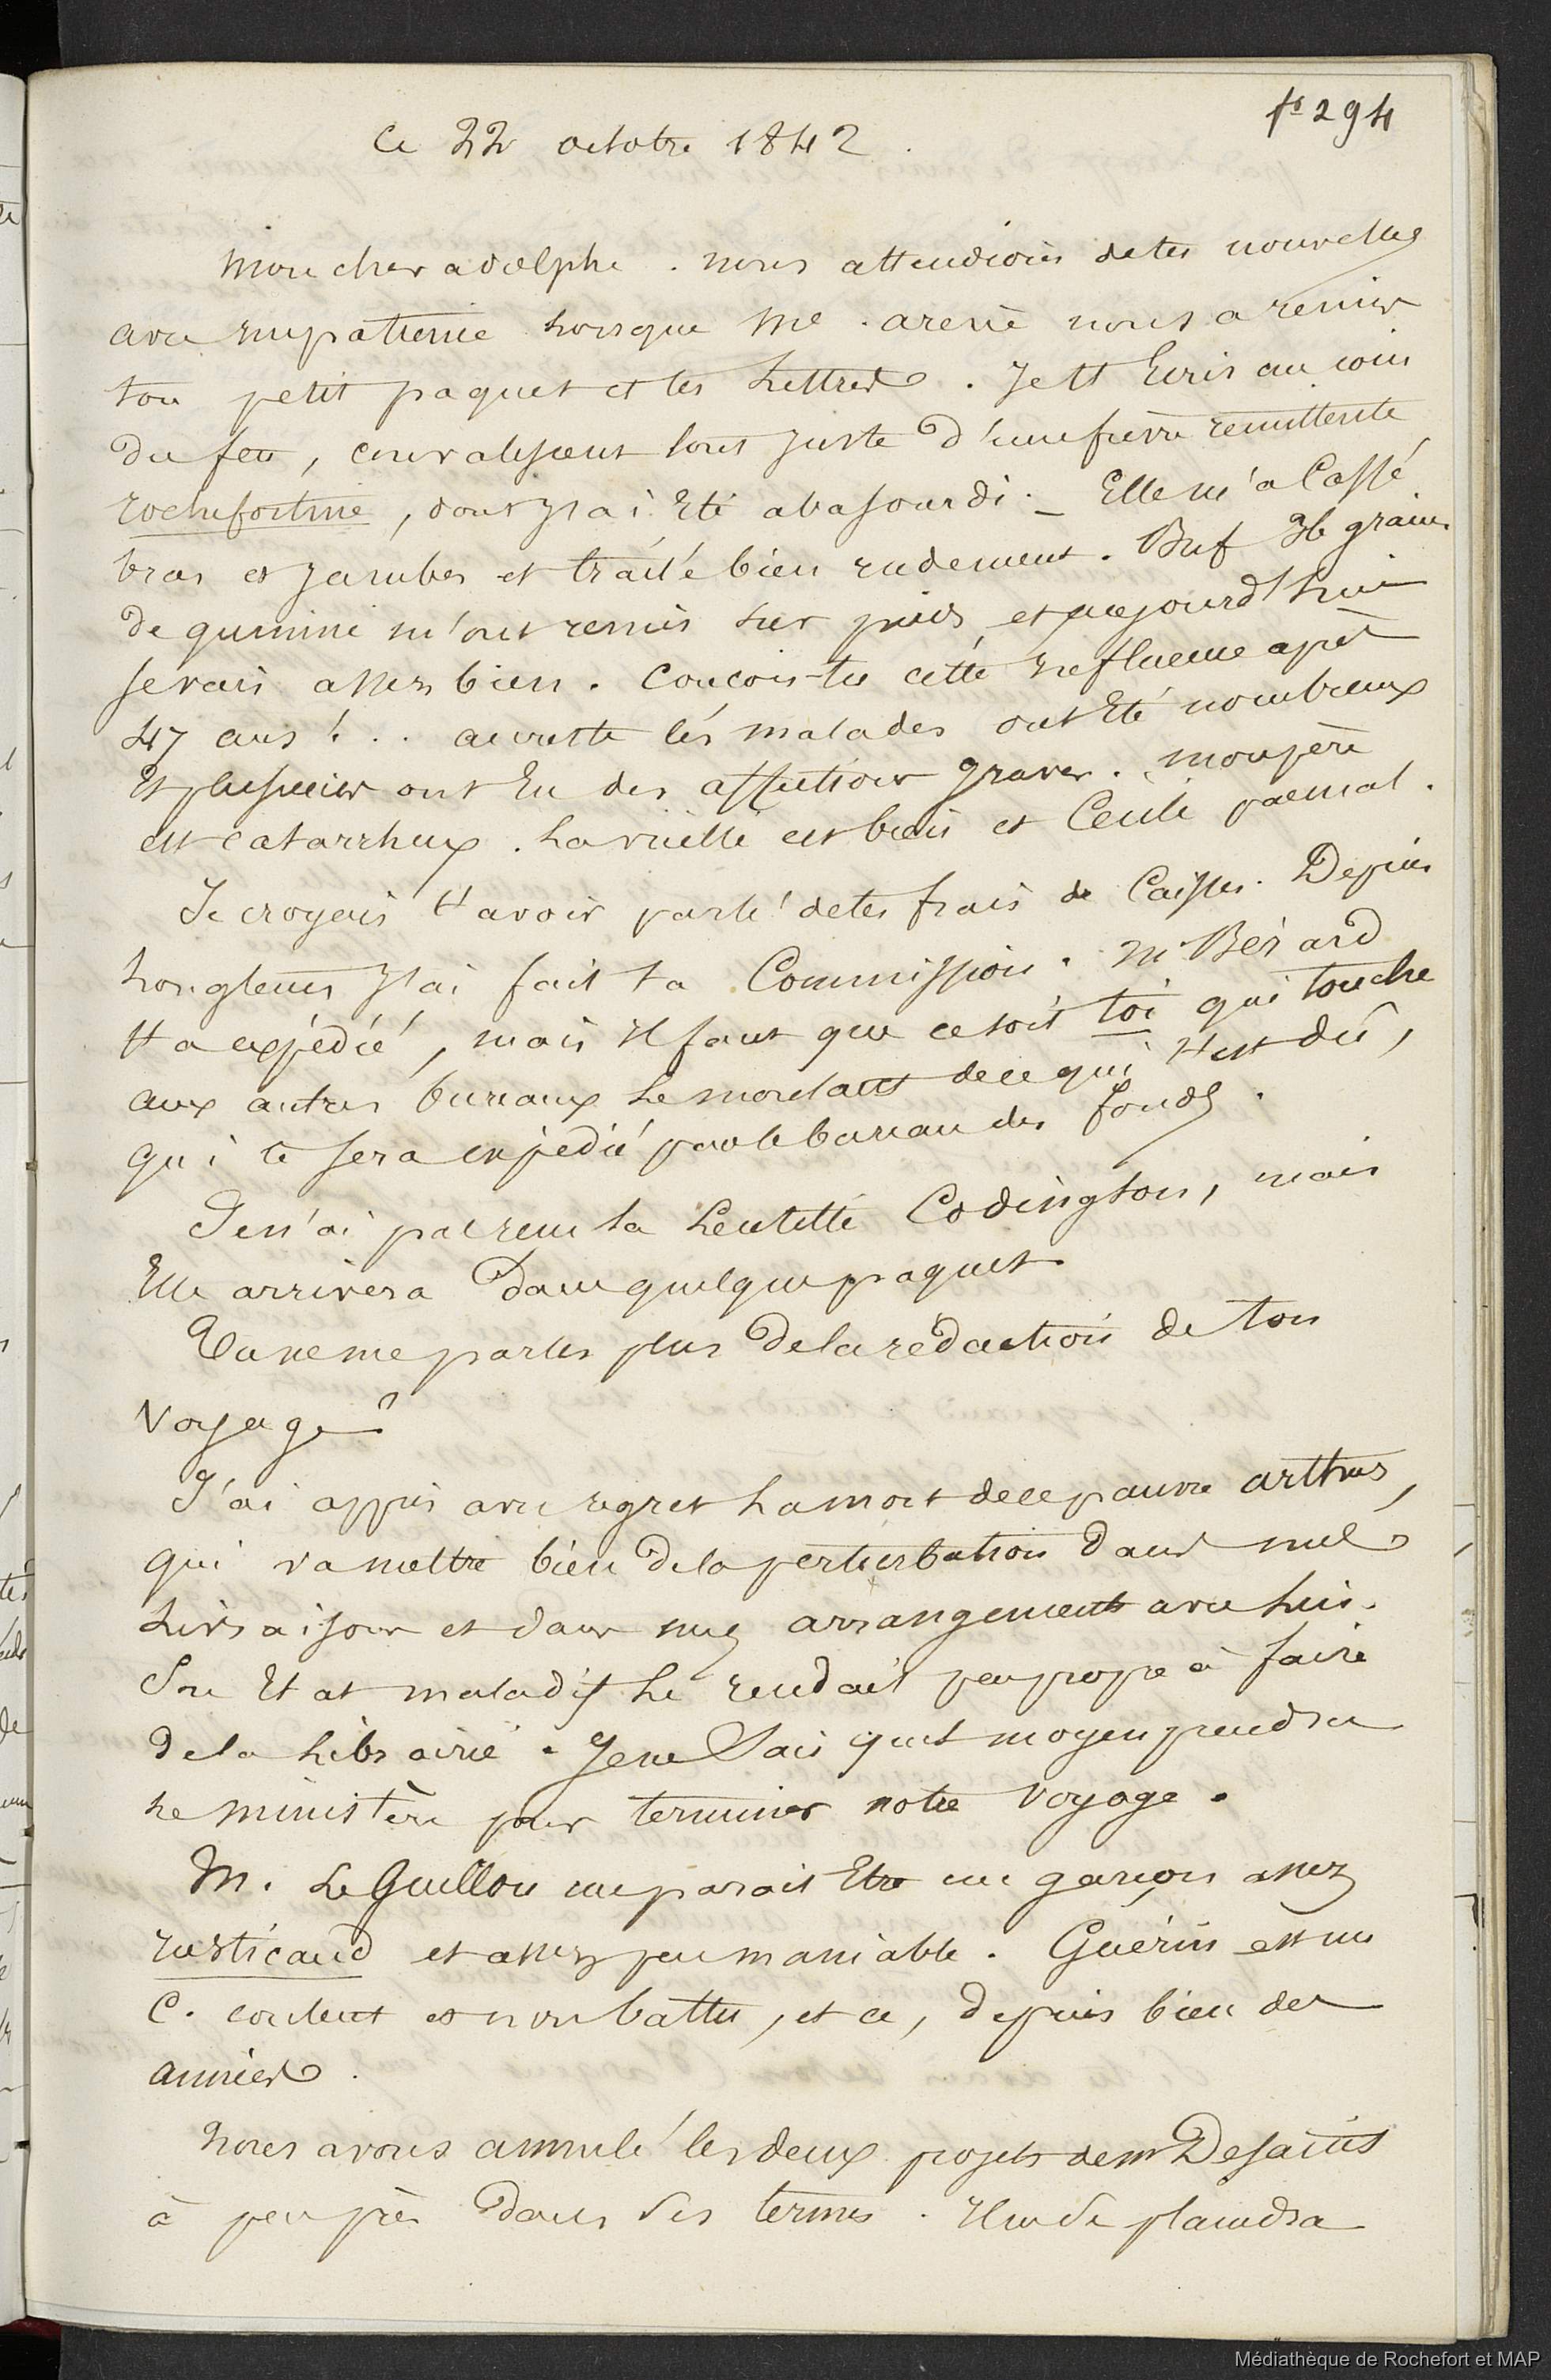 fo 294
Ce 22 octobre 1842.
Mon cher adolphe. nous attendions de tes nouvelles
avec impatience lorsque Me. arene nous a remis
ton petit paquet et tes lettres. Je tt Ecris au coin
du feu, convalescent tout juste d'une fievre remittente
rochefortine, dont J'ai Eté abasourdi. _ Elle m'a Cassé
bras et jambes et traité bien rudement. Bref 36 grains
de quinine m'ont remis sur pieds et aujourd'hui
je vais assez bien. Conçois-tu cette Influence après
47 ans !.. au reste les malades ont Eté nombreux
Et plusieurs ont Eu des affections graves. mon père
est catarrheux. La vieille est bien et Cecile pas mal.
Je croyais t'avoir parlé de tes frais de Caisses. Depuis
longtems J'ai fait ta Commission. M Bérard
t'a expédié, mais Il faut que ce soit toi qui touche
aux autres bureaux le mondant de ce qui t'est dû,
qui te sera expédié par le bureau des fonds.
Je n'ai pas reçu ta lentille Codington, mais
Elle arrivera Dans quelque paquet
Tu ne me parles plus De la rédaction de ton
Voyage?
J'ai appris avec regret la mort de ce pauvre arthus,
qui va mettre bien De la perturbation Dans mes
livraisons et dans mes arrangements avec lui.
Son Etat maladif le rendait peu propre à faire
De la librairie. Je ne Sais quel moyen prendra
le ministère pour terminer notre Voyage.
M. Le Guillou me parait Etre un garçon assez
rusticaud et assez peu maniable. Guérin est un
C. content et non battu, et ce, Depuis bien des
années.
Nous avons annulé les deux projets de m Desaints
à peu près Dans Ses termes. Il ne Se plaindra
Médiathèque de Rochefort et MAP